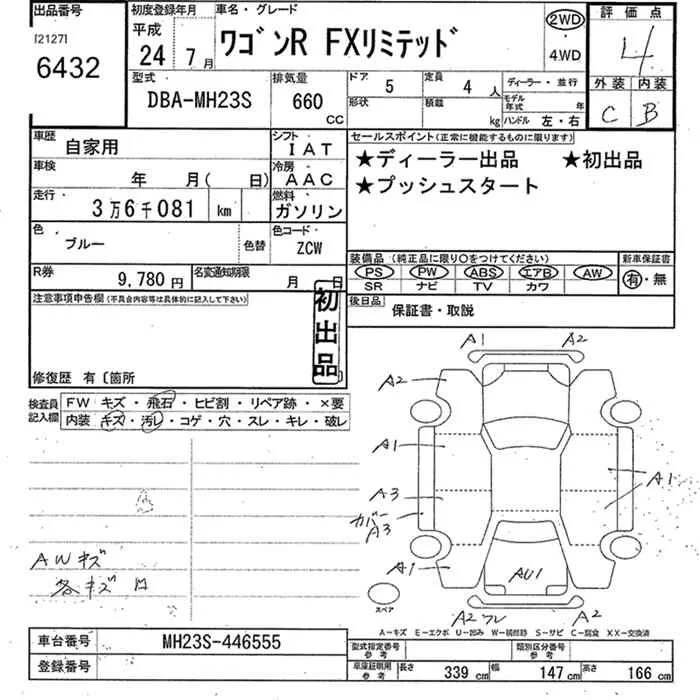 出品番号
[2127]
6432
初度登録年月
平成
24年 7月
車名・グレード
ワゴンR FXリミテッド
2WD
・
4WD
評価点
4
外装 内装
C B
型式
DBA-MH23S
排気量
660
CC
ドア
5
定員
4人
ディーラー・並行
形状
積載
kg
モデル年式 年
ハンドル 左・右
車歴
自家用
シフト
IAT
車検
年 月( 日)
冷房
AAC
走行
3万6千081 km
燃料
ガソリン
色
ブルー
色替
色コード
ZCW
R券
9,780円
名変通知期限
月 日
セールスポイント(正常に機能するものに限ります)
★ディーラー出品 ★初出品
★プッシュスタート
装備品(純正品に限り○をつけてください)
PS PW ABS エアB AW
SR ナビ TV カワ
新車保証書
有・無
後日品
保証書・取説
注意事項申告欄(不具合内容等は具体的に記入して下さい)
初出品
修復歴 有〔箇所 〕
検査員記入欄
FW キズ・飛石・ヒビ割・リペア跡・×要
内装 キズ・汚レ・コゲ・穴・スレ・キレ・破レ
AWキズ
各キズ
A1 A2
A2
A1
A3
カバー
A3
A1
A1
AU1
A2 フレ A2
スペア
A-キズ E-エクボ U-凹み W-補修跡 S-サビ C-腐食 XX-交換済
車台番号
MH23S-446555
登録番号
型式指定番号
参考
類別区分番号
参考
車庫証明用
参考
長さ 339cm 幅 147cm 高さ 166cm